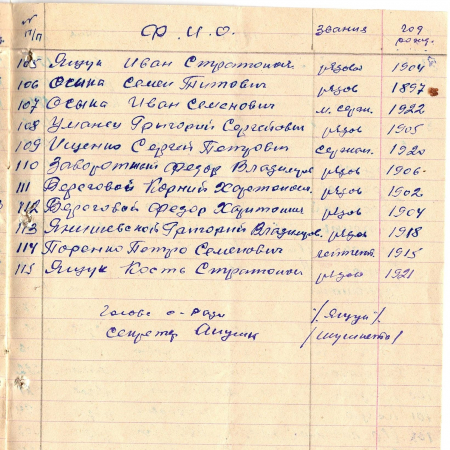 № п/п Ф. И. О. Звания год рожд.
105 Ящук Иван Стратонов. рядов 1904
106 Осыка Семен Титович рядов 1897
107 Осыка Иван Семенович м. серж. 1922
108 Уманец Григорий Сергеевич рядов 1905
109 Ищенко Сергей Петрович сержан. 1920
110 Заворотний Федор Владимиров. рядов 1906
111 Береговой Корний Харитонов. рядов 1902
112 Береговой Федор Харитонов рядов 1904
113 Янишевский Григорий Владимиров. рядов 1918
114 Поренко Петро Семенович лейтент. 1915
115 Ящук Кость Стратонов рядов 1921
Голова с-ради /Ящук/
Секретар